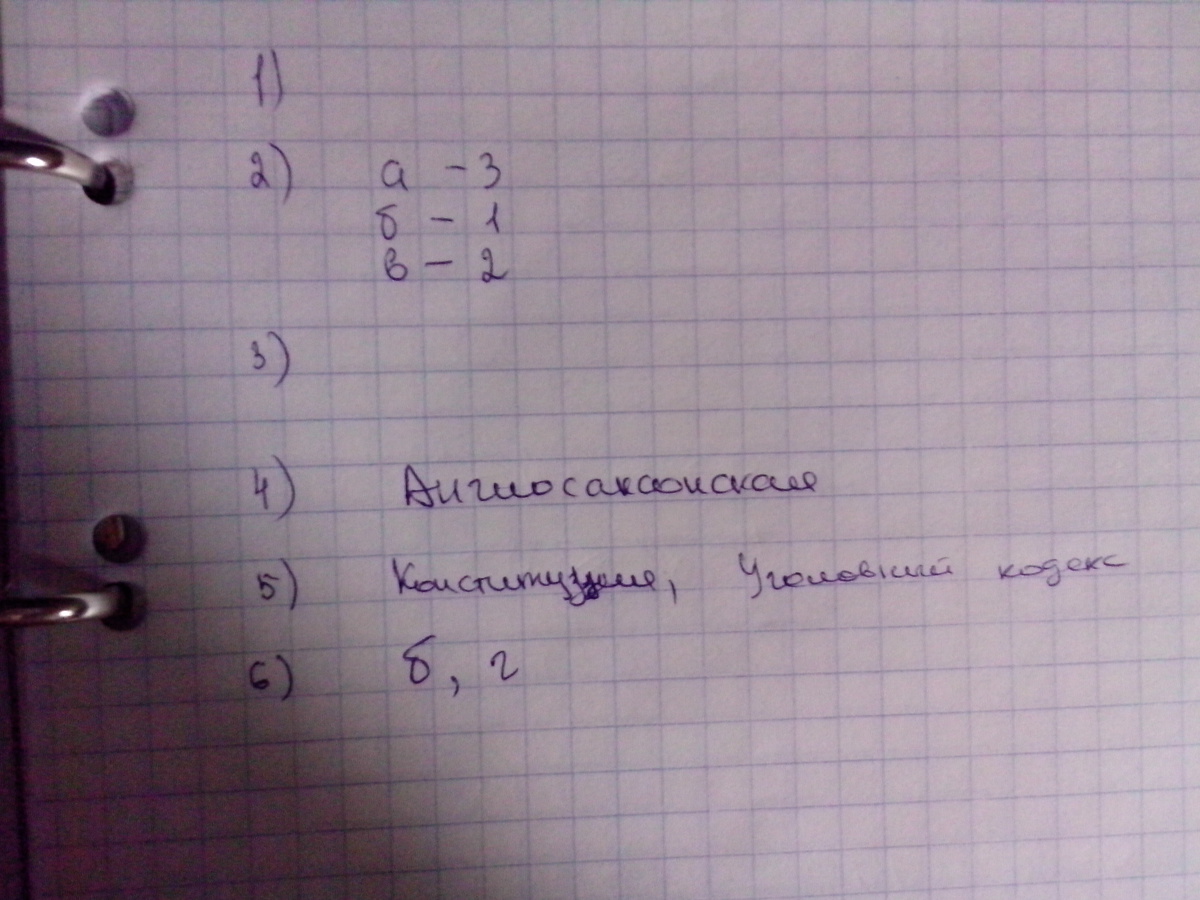 1)
2) а - 3
б - 1
в - 2
3)
4) Англосаксонская
5) Конституция, Уголовный кодекс
6) б, г